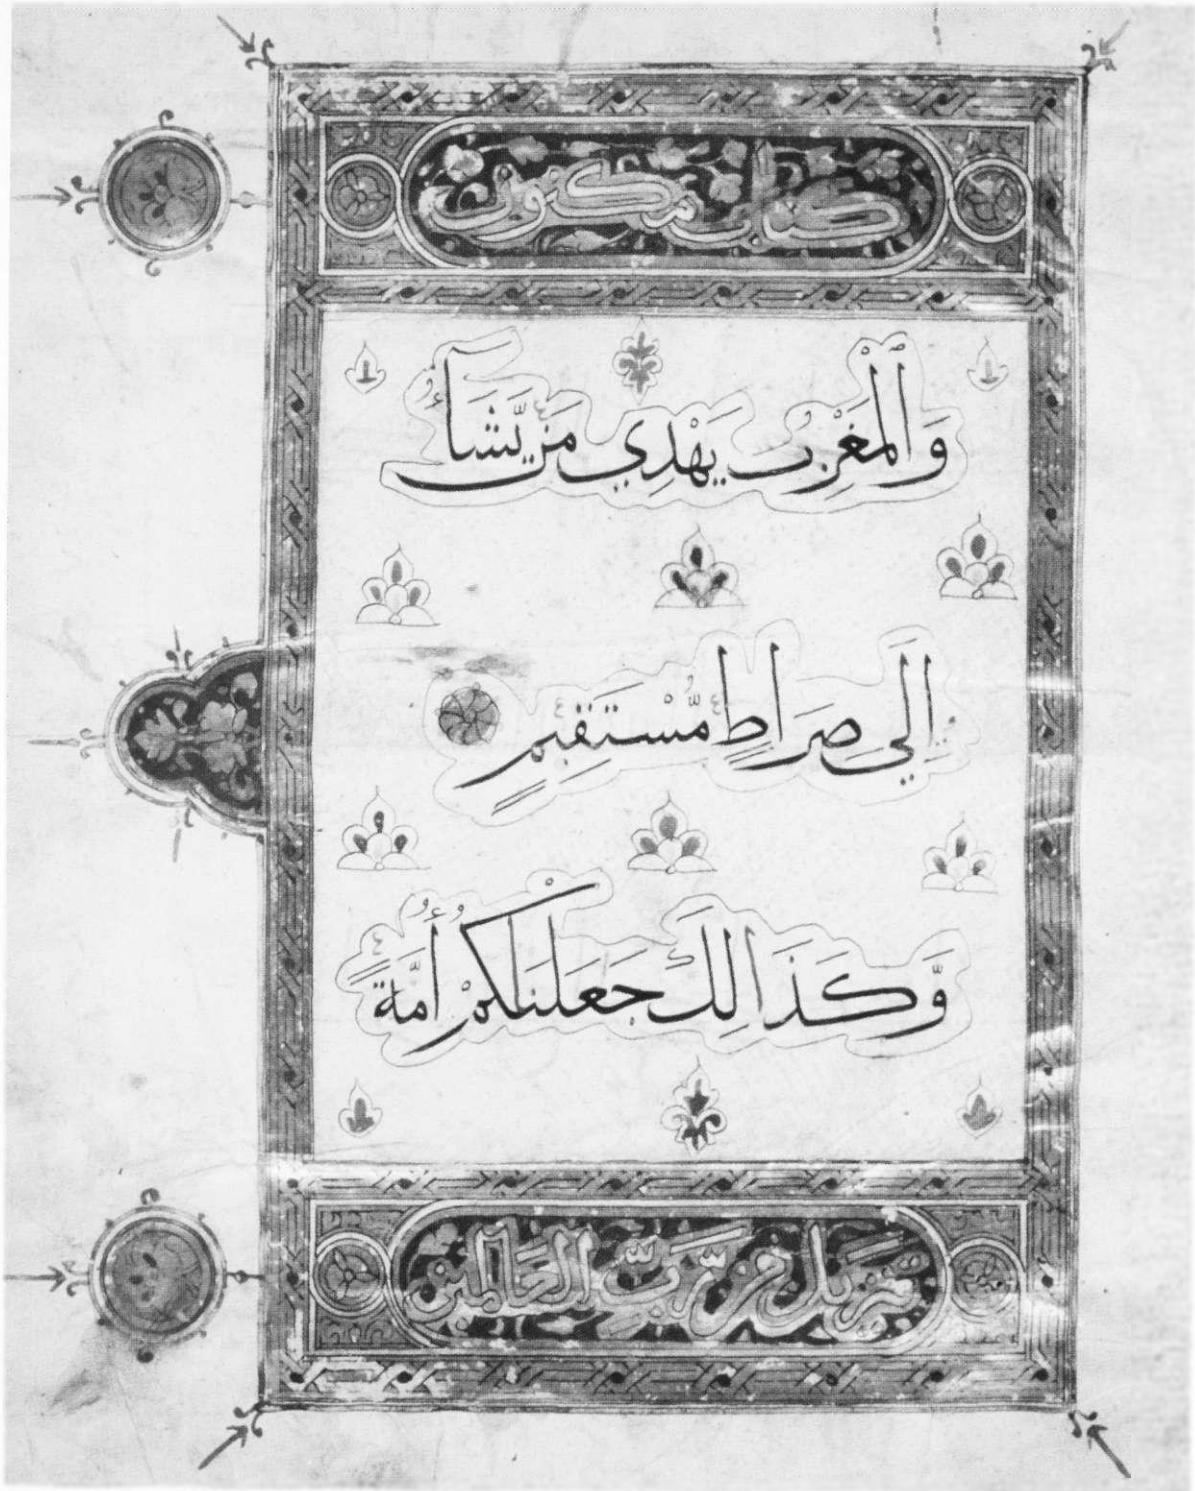 كتاب مكنون
وَٱلْمَغْرِبُ يَهْدِي مَن يَّشَآءُ
إِلَي صِرَاطٍ مُّسْتَقِيمٍ
وَّكَذَالِكَ جَعَلْنَاكُمْ أُمَّةً
تنزيل من رَّبِّ العالمين